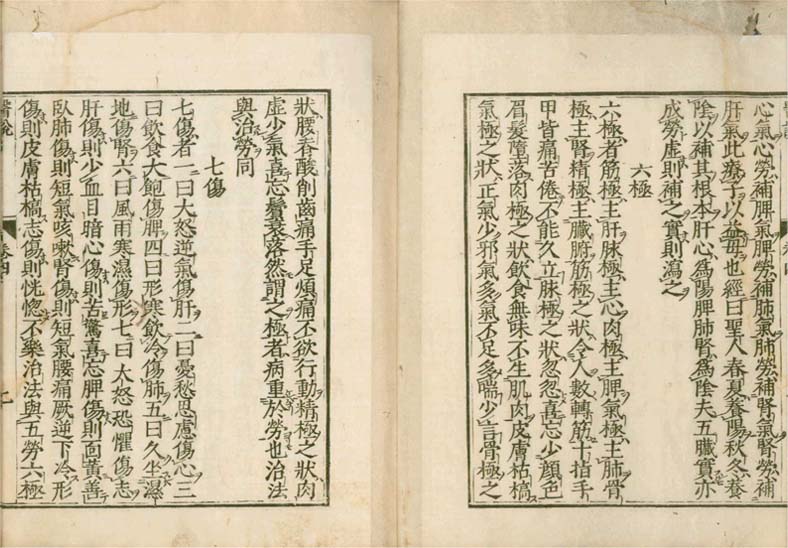 心氣心勞補脾氣脾勞補肺氣肺勞補腎氣腎勞補
肝氣此療子以益母也經曰聖人春夏養陽秋冬養
陰以補其根本肝心爲陽脾肺腎爲陰夫五臟實亦
成勞虛則補之實則瀉之
六極
六極者筋極主肝脉極主心肉極主脾氣極主肺骨
極主腎精極主臟腑筋極之狀令人數轉筋十指手
甲皆痛苦倦不能久立脉極之狀忽忽喜忘少顏色
眉髮墮落肉極之狀飲食無味不生肌肉皮膚枯槁
氣極之狀正氣少邪氣多氣不足多喘少言骨極之
狀腰脊酸削齒痛手足煩痛不欲行動精極之狀肉
虛少氣喜忘鬢衰落然謂之極者病重於勞也治法
與治勞同
七傷
七傷者一曰大怒逆氣傷肝二曰憂愁思慮傷心三
曰飲食大飽傷脾四曰形寒飲冷傷肺五曰久坐濕
地傷腎六曰風雨寒濕傷形七曰大怒恐懼傷志
肝傷則少血目暗心傷則苦驚喜忘脾傷則面黄善
臥肺傷則短氣咳嗽腎傷則短氣腰痛厥逆下冷形
傷則皮膚枯槁志傷則恍惚不樂治法與五勞六極
醫說 卷四